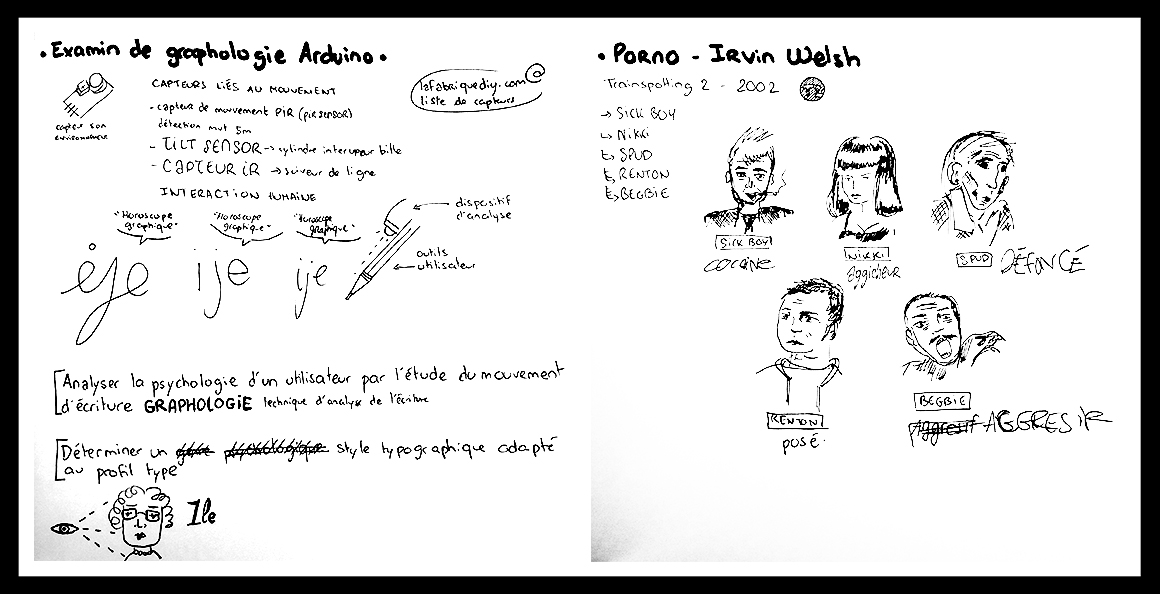 • Examin de graphologie Arduino •
CAPTEURS LIÉS AU MOUVEMENT
lafabriquediy.com @
liste de capteurs
- capteur de mouvement PiR (pir sensor)
détection mvt 5m
capteur son
environnement
- TILT SENSOR → cylindre interupeur bille
- CAPTEUR iR → suiveur de ligne
INTERACTION HUMAINE
"Horoscope
graphique"
"Horoscope
graphique"
"Horoscope
graphique"
dispositif
d'analyse
outils
utilisateur
ije
ije
ije
Analyser la psychologie d'un utilisateur par l'étude du mouvement
d'écriture GRAPHOLOGIE technique d'analyse de l'écriture
Déterminer un psychologique style typographique adapté
au profil type
Ile
• PORNO - IRvin Welsh
Trainspotting 2 - 2002
→ SICK BOY
↳ Nikki
↳ SPUD
↳ RENTON
↳ BEGBIE
SICK BOY
cocaïne
NIKKI
aggicheur
SPUD
DÉFONCÉ
RENTON
posé
BEGBIE
Aggresif AGGRESIF